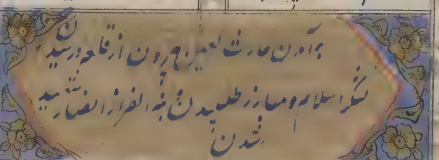 بر آمدن حارث لعین بیرون از قلعه و رسیدن
لشکر اسلام و مبارز طلبیدن و سه نفر از انصار شهید
شدن